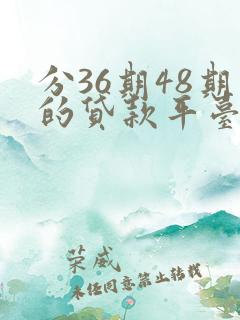 分36期48期
的贷款平台
荣威
未经同意禁止转载